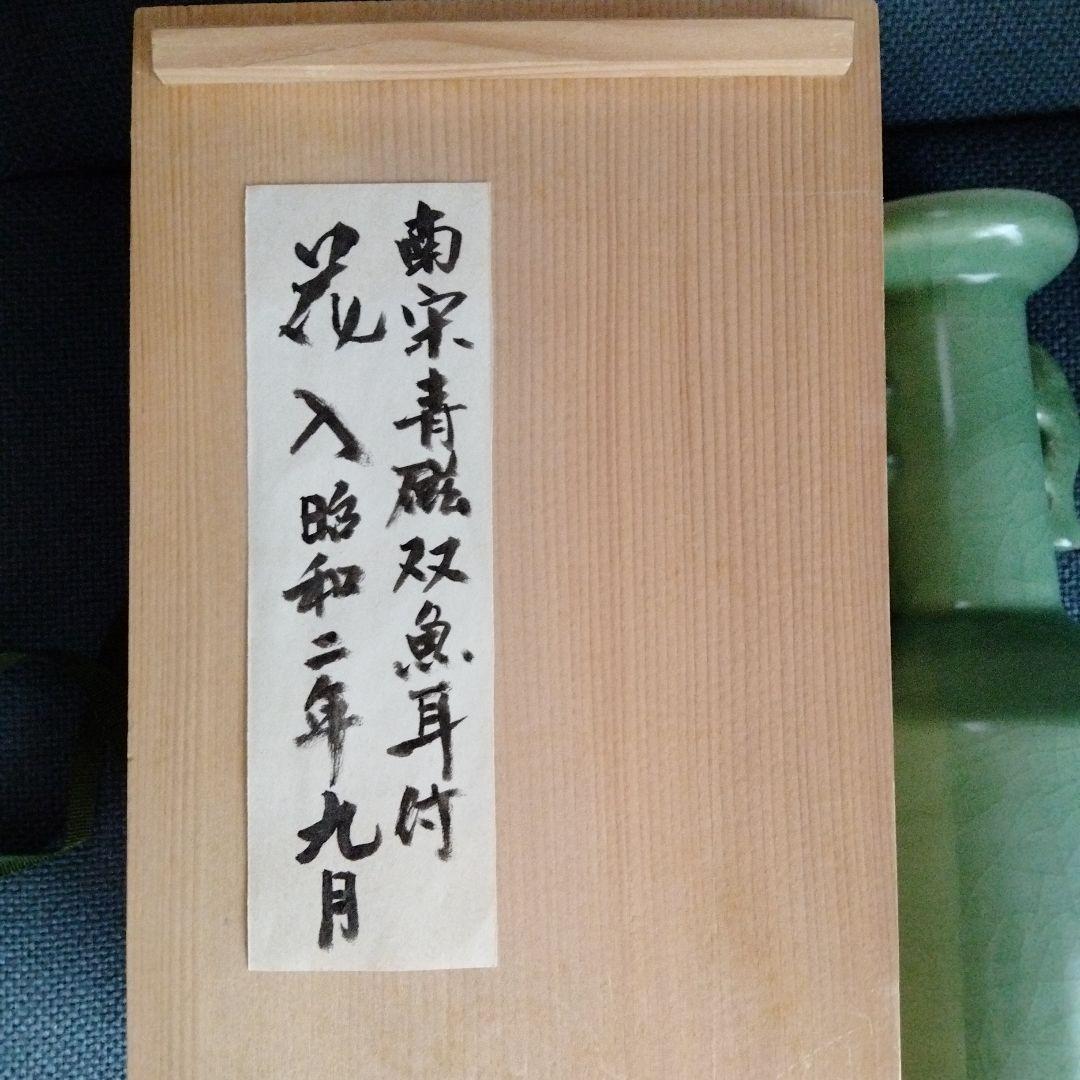 南宋青磁双魚耳付
花入昭和二年九月